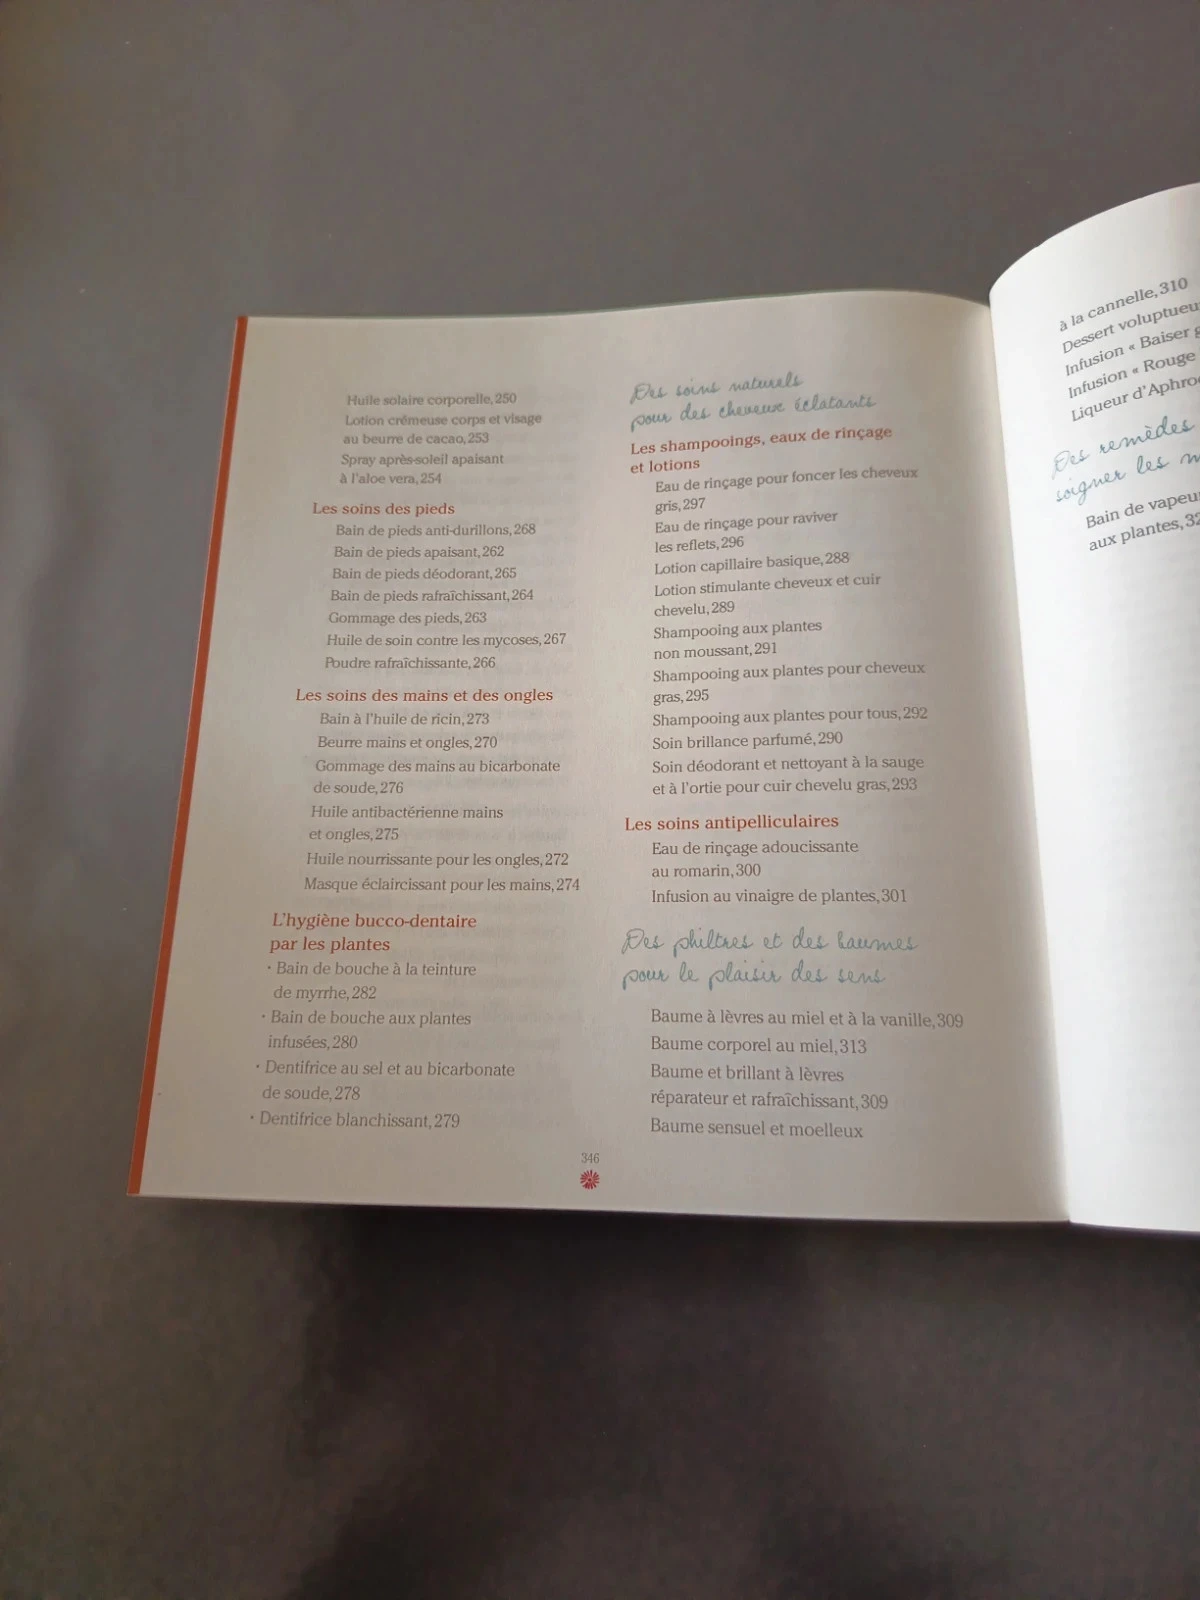 Huile solaire corporelle, 250
Lotion crémeuse corps et visage
au beurre de cacao, 253
Spray après-soleil apaisant
à l'aloe vera, 254
Les soins des pieds
Bain de pieds anti-durillons, 268
Bain de pieds apaisant, 262
Bain de pieds déodorant, 265
Bain de pieds rafraîchissant, 264
Gommage des pieds, 263
Huile de soin contre les mycoses, 267
Poudre rafraîchissante, 266
Les soins des mains et des ongles
Bain à l'huile de ricin, 273
Beurre mains et ongles, 270
Gommage des mains au bicarbonate
de soude, 276
Huile antibactérienne mains
et ongles, 275
Huile nourrissante pour les ongles, 272
Masque éclaircissant pour les mains, 274
L'hygiène bucco-dentaire
par les plantes
• Bain de bouche à la teinture
de myrrhe, 282
• Bain de bouche aux plantes
infusées, 280
• Dentifrice au sel et au bicarbonate
de soude, 278
• Dentifrice blanchissant, 279
Des soins naturels
pour des cheveux éclatants
Les shampooings, eaux de rinçage
et lotions
Eau de rinçage pour foncer les cheveux
gris, 297
Eau de rinçage pour raviver
les reflets, 296
Lotion capillaire basique, 288
Lotion stimulante cheveux et cuir
chevelu, 289
Shampooing aux plantes
non moussant, 291
Shampooing aux plantes pour cheveux
gras, 295
Shampooing aux plantes pour tous, 292
Soin brillance parfumé, 290
Soin déodorant et nettoyant à la sauge
et à l'ortie pour cuir chevelu gras, 293
Les soins antipelliculaires
Eau de rinçage adoucissante
au romarin, 300
Infusion au vinaigre de plantes, 301
Des philtres et des baumes
pour le plaisir des sens
Baume à lèvres au miel et à la vanille, 309
Baume corporel au miel, 313
Baume et brillant à lèvres
réparateur et rafraîchissant, 309
Baume sensuel et moelleux
346
à la cannelle, 310
Dessert voluptueu
Infusion « Baiser
Infusion « Rouge
Liqueur d'Aphro
Des remèdes
soigner les
Bain de vapeu
aux plantes, 32